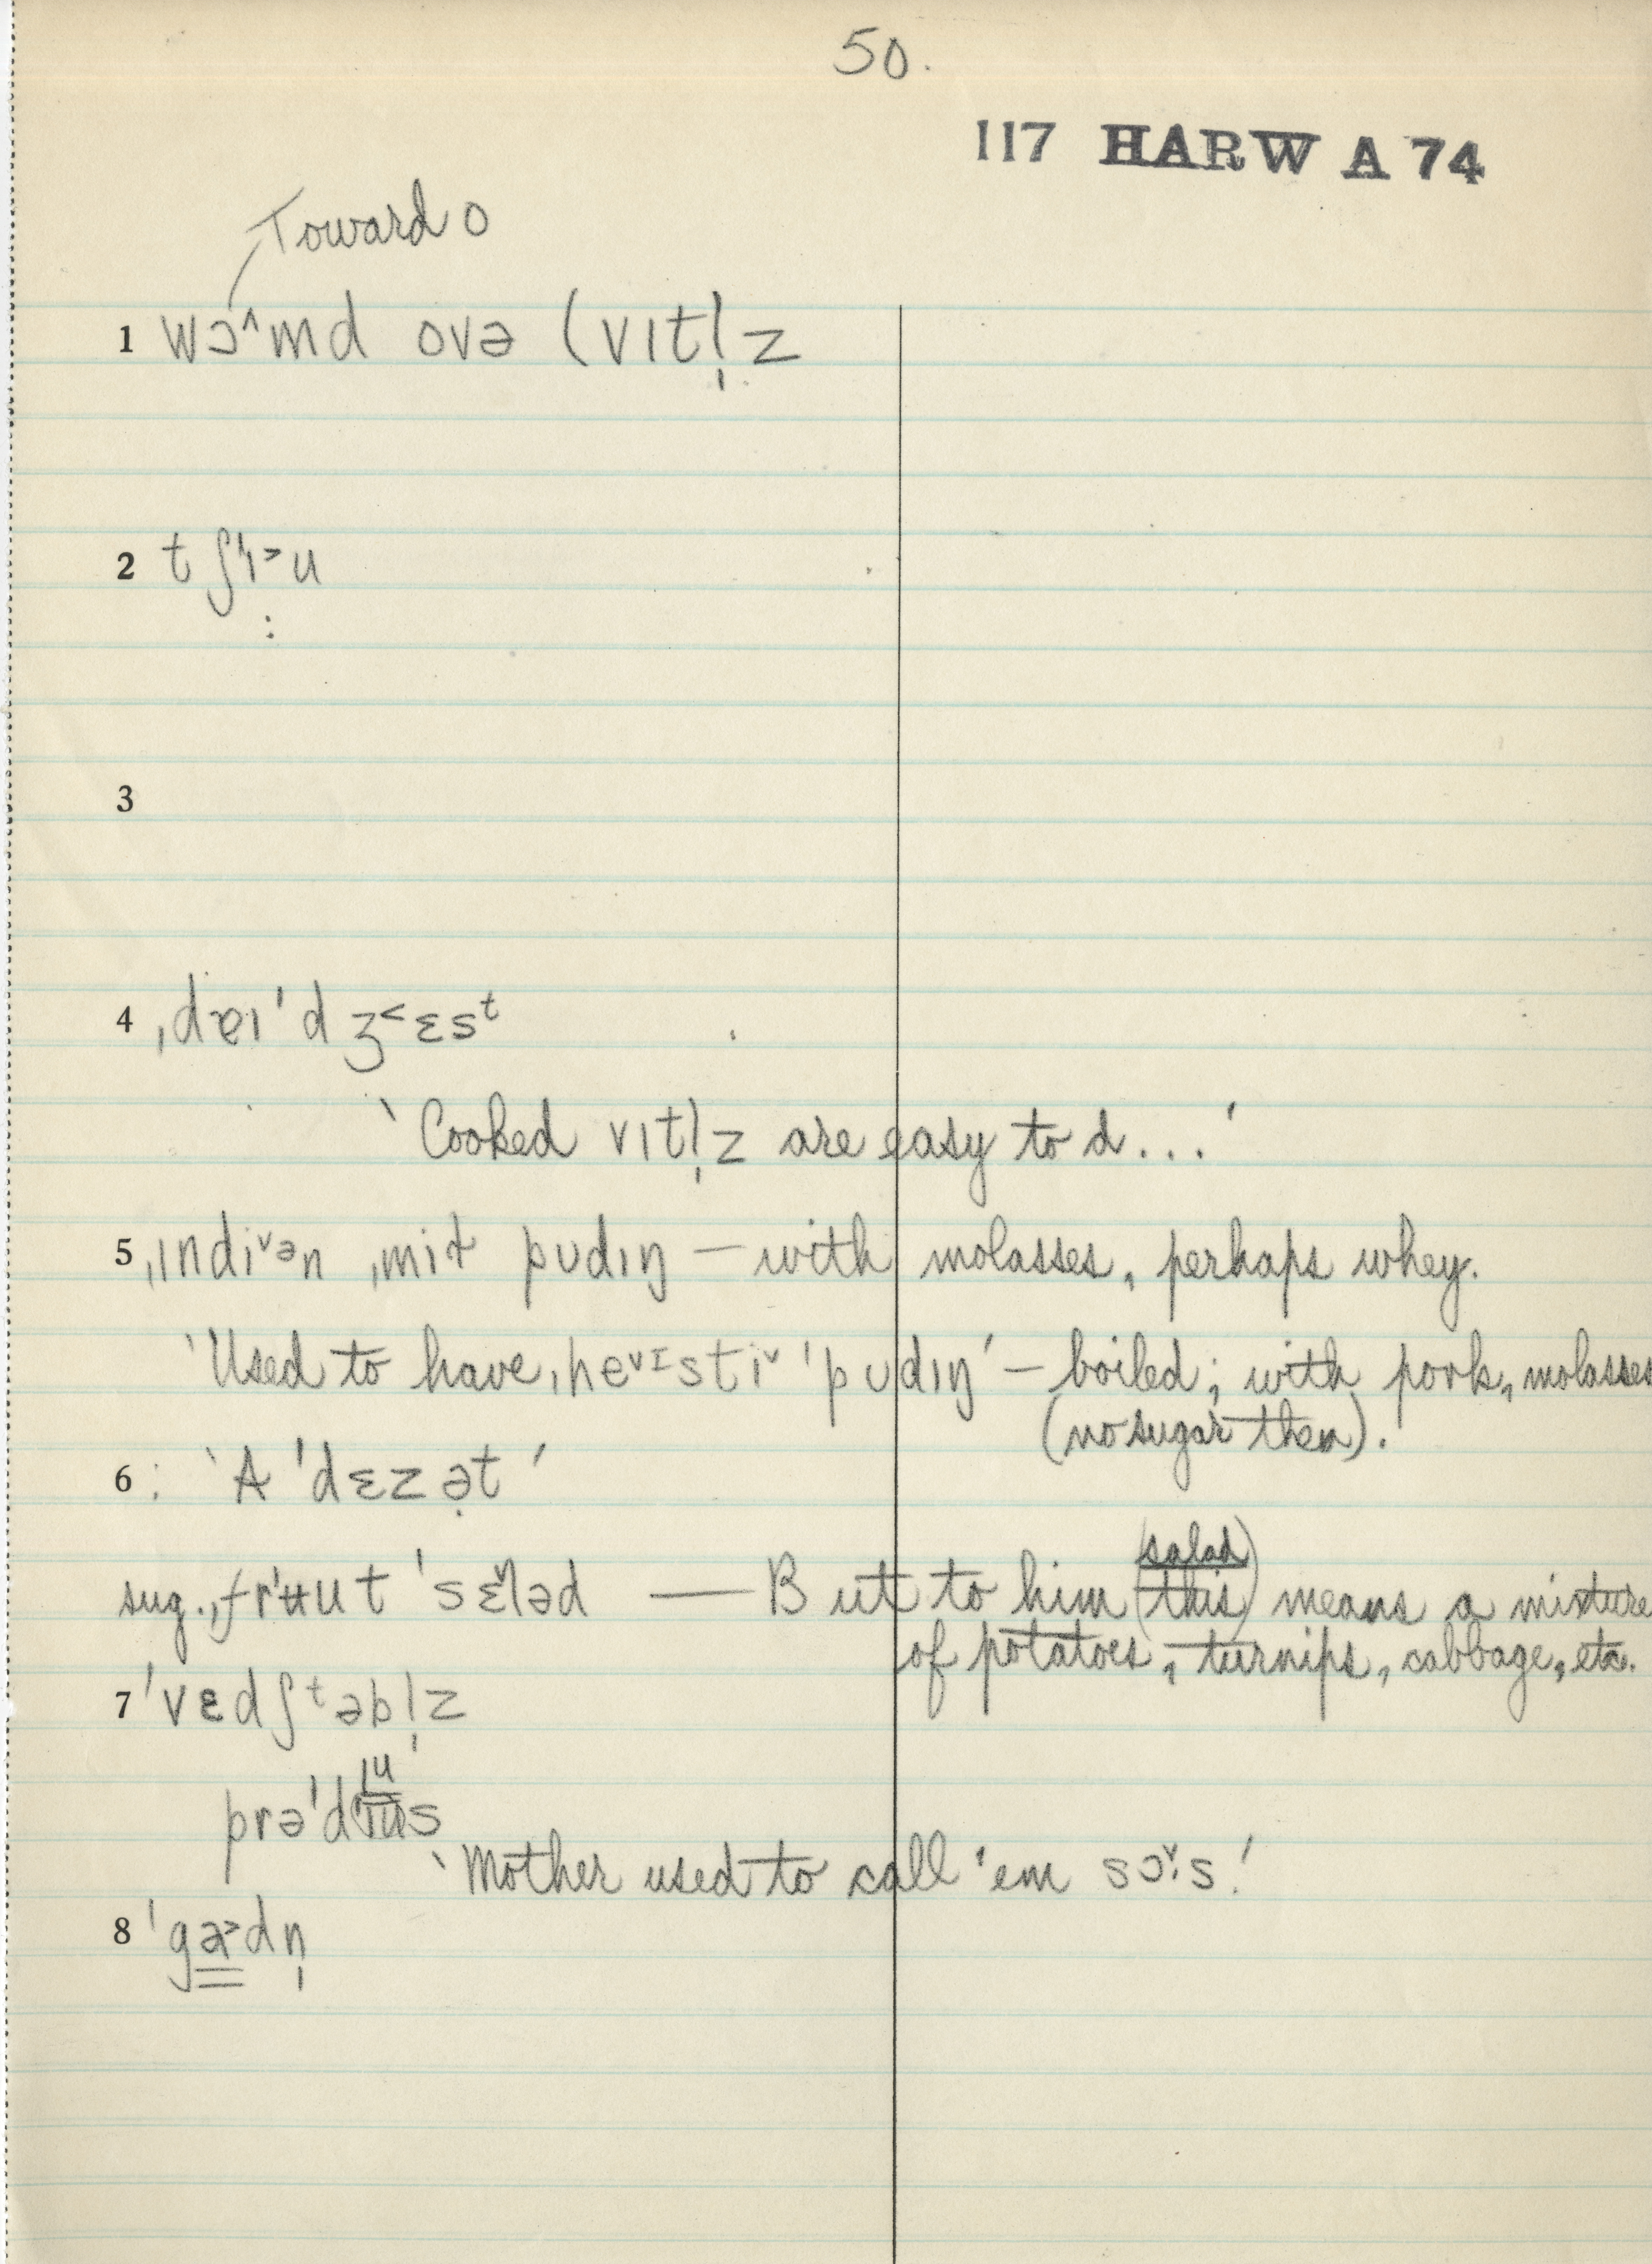 50.
117 HARW A 74
Toward o
1 wɔ˄md ovə (vɪtl̩z
2 tʃɪ˃u
:
3
4 ˌdɐɪˈdʒ˂ɛsᵗ
‵Cooked vɪtl̩z are easy to d...′
5 ˌɪndi˅ən ˌmiɫ pʊdɪŋ — with molasses, perhaps whey.
‵Used to have ˌhe˅ɪsti˅ ˈpʊdɪŋ′ — boiled; with pork, molasses
(no sugar then).
6 : ‵A ˈdɛzə̣t′
(salad)
sug. ˌfrʉut ˈsɛ˅ləd — But to him (this) means a mixture
of potatoes, turnips, cabbage, etc.
7 ˈvɛdʃᵗəbl̩z
prəˈdɪus
‵Mother used to call 'em sɔ˅:s.′
8 ˈga˃dn̩